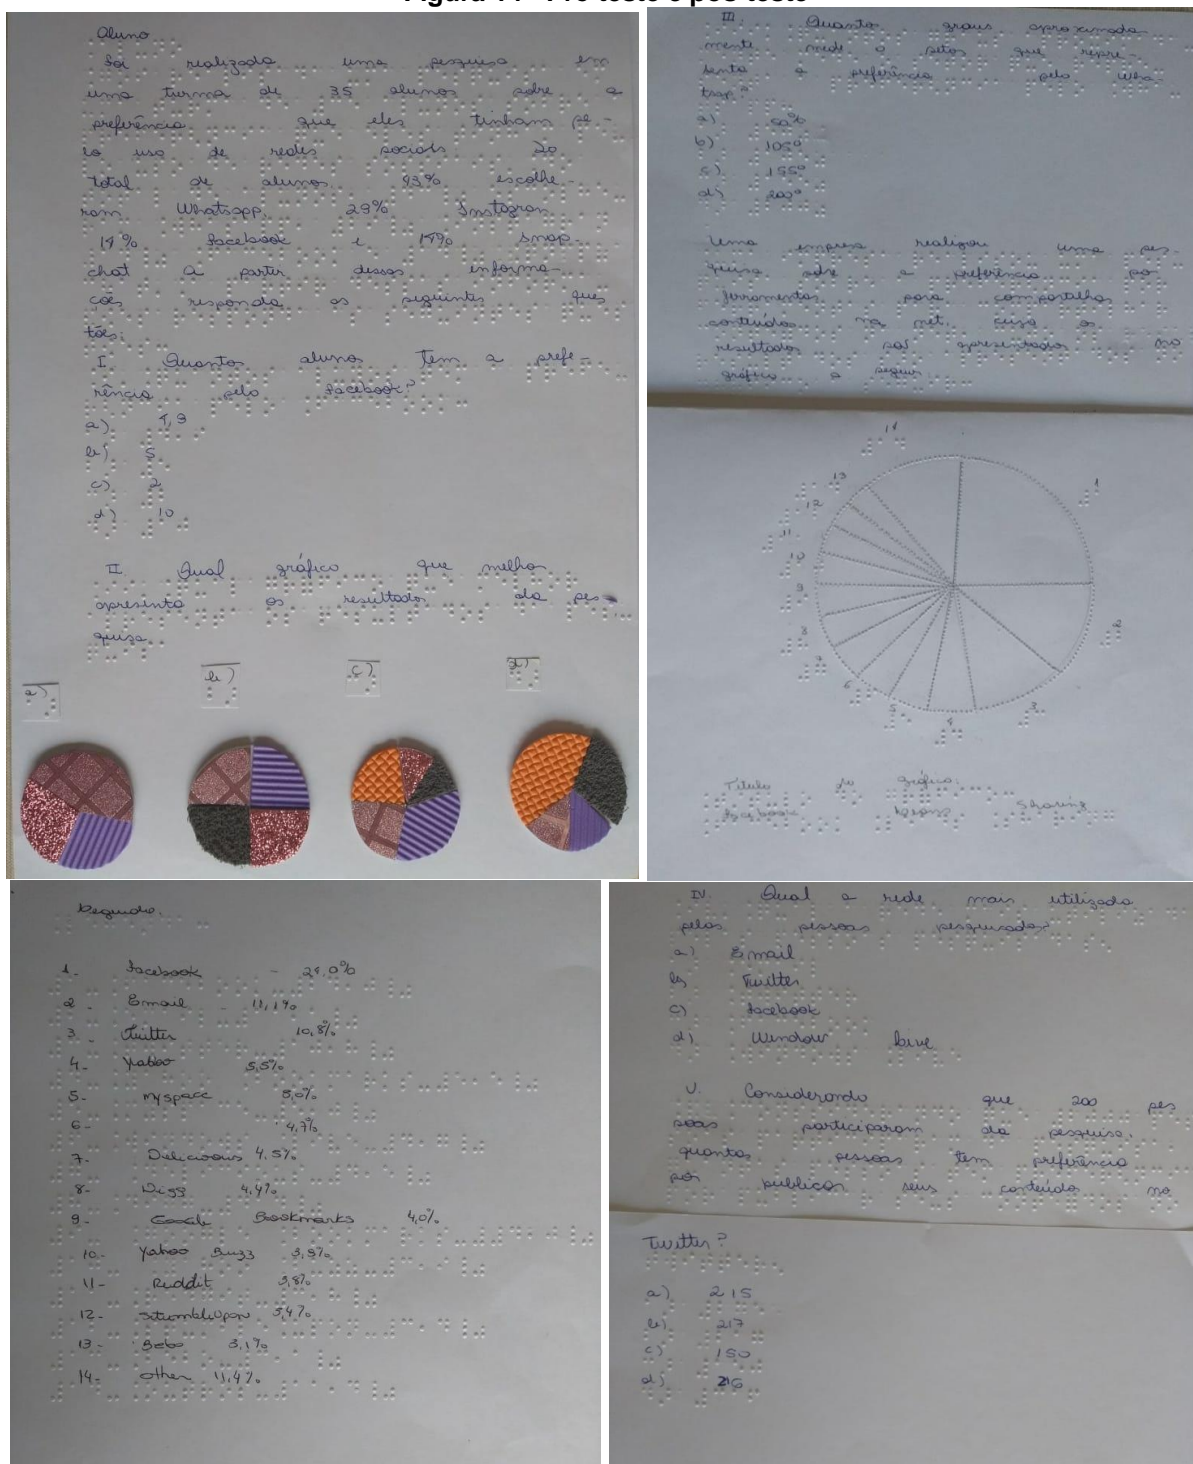 Figura 11 - Pré-teste e pós-teste
Aluno
Foi realizada uma pesquisa em
uma turma de 35 alunos sobre a
preferência que eles tinham pe-
lo uso de redes sociais Do
total de alunos 43% escolhe-
ram Whatsapp 29% Instagran
14% facebook e 14% snap-
chat A partir dessas informa-
ções responda as seguintes ques
tões:
I. Quantos alunos tem a prefe-
rência pelo facebook?
a) 4,9
b) 5
c) 2
d) 10
II Qual gráfico que melhor
apresenta os resultados da pes-
quisa
a)
b)
c)
d)
III. Quantos graus aproximada
mente mede o setor que repre-
senta a preferência pelo
a)
b) 105º
c) 155º
d) 200º
Uma empresa realizou uma pes-
quisa sobre a preferência por
ferramentas para compartilhar
conteúdos na net, cujo os
resultados são apresentados no
gráfico a seguir
14
13
12
11
10
9
8
7
6
5
4
3
2
1
Título do gráfico:
facebook Sharing
1- facebook - 24,0%
2- Email 11,1%
3- Twitter 10,8%
4- Yahoo 5,5%
5- myspace 5,0%
6- 4,7%
7- Delicious 4,5%
8- Digg 4,4%
9- Google Bookmarks 4,0%
10- Yahoo Buzz 3,9%
11- Reddit 3,8%
12- StumbleUpon 3,4%
13- Bebo 3,1%
14- other 11,4%
IV. Qual a rede mais utilizada
pelas pessoas pesquisadas?
a) Email
b) Twitter
c) facebook
d) Window live
V. Considerando que 200 pes
soas participaram da pesquisa,
quantas pessoas tem preferência
por publicar seus conteúdos no
Twitter?
a) 215
b) 217
c) 150
d) 216